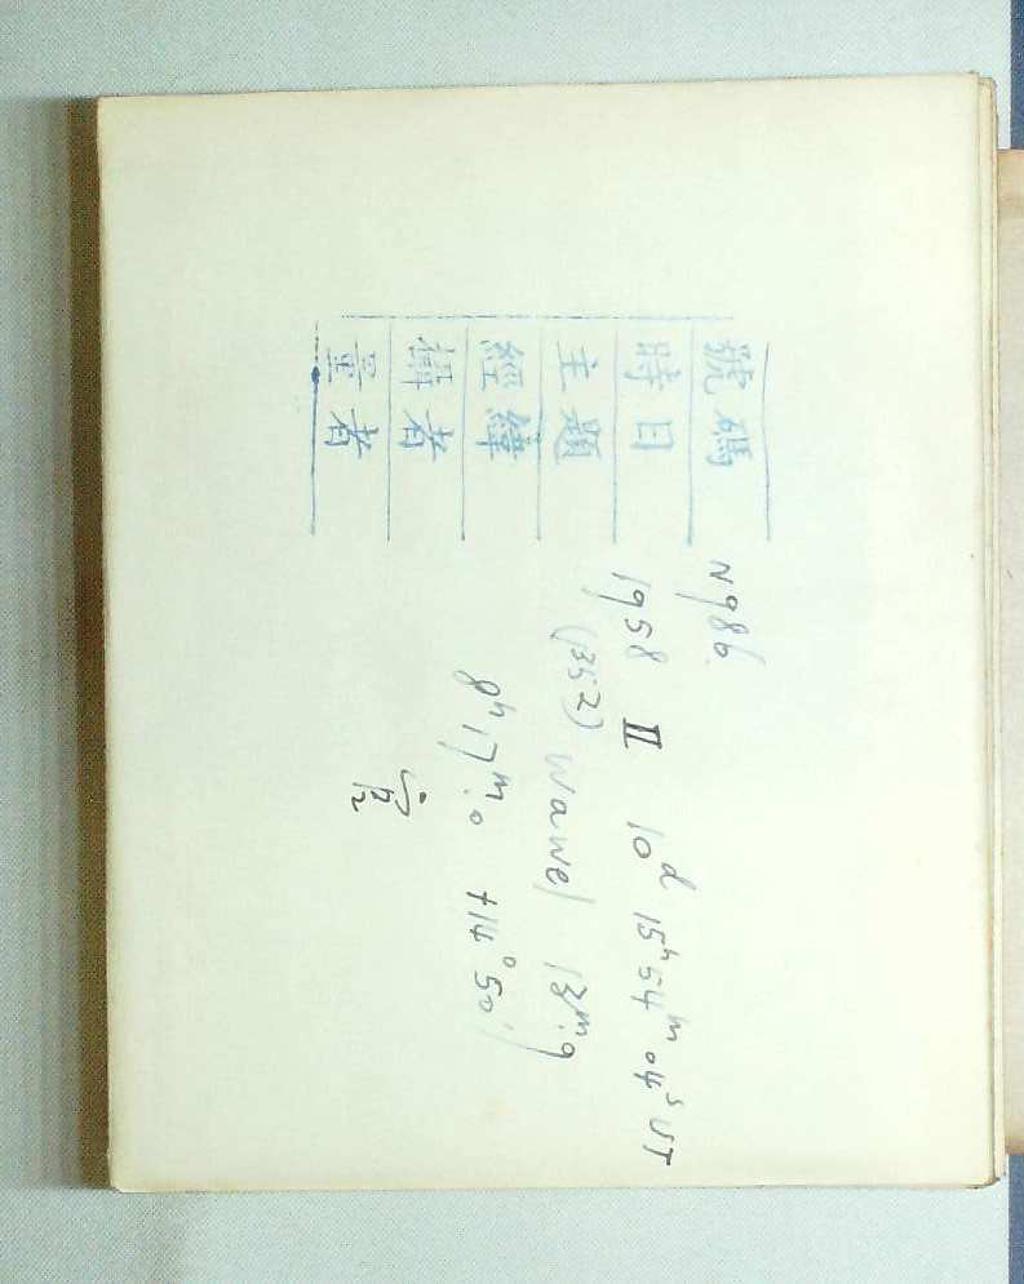 號碼 N986
時日 1958 II 10d 15h 54m 04s UT
主題 (1352) Wawel 13m.9
經緯 8h 17m.0 +14°50'
攝者
量者